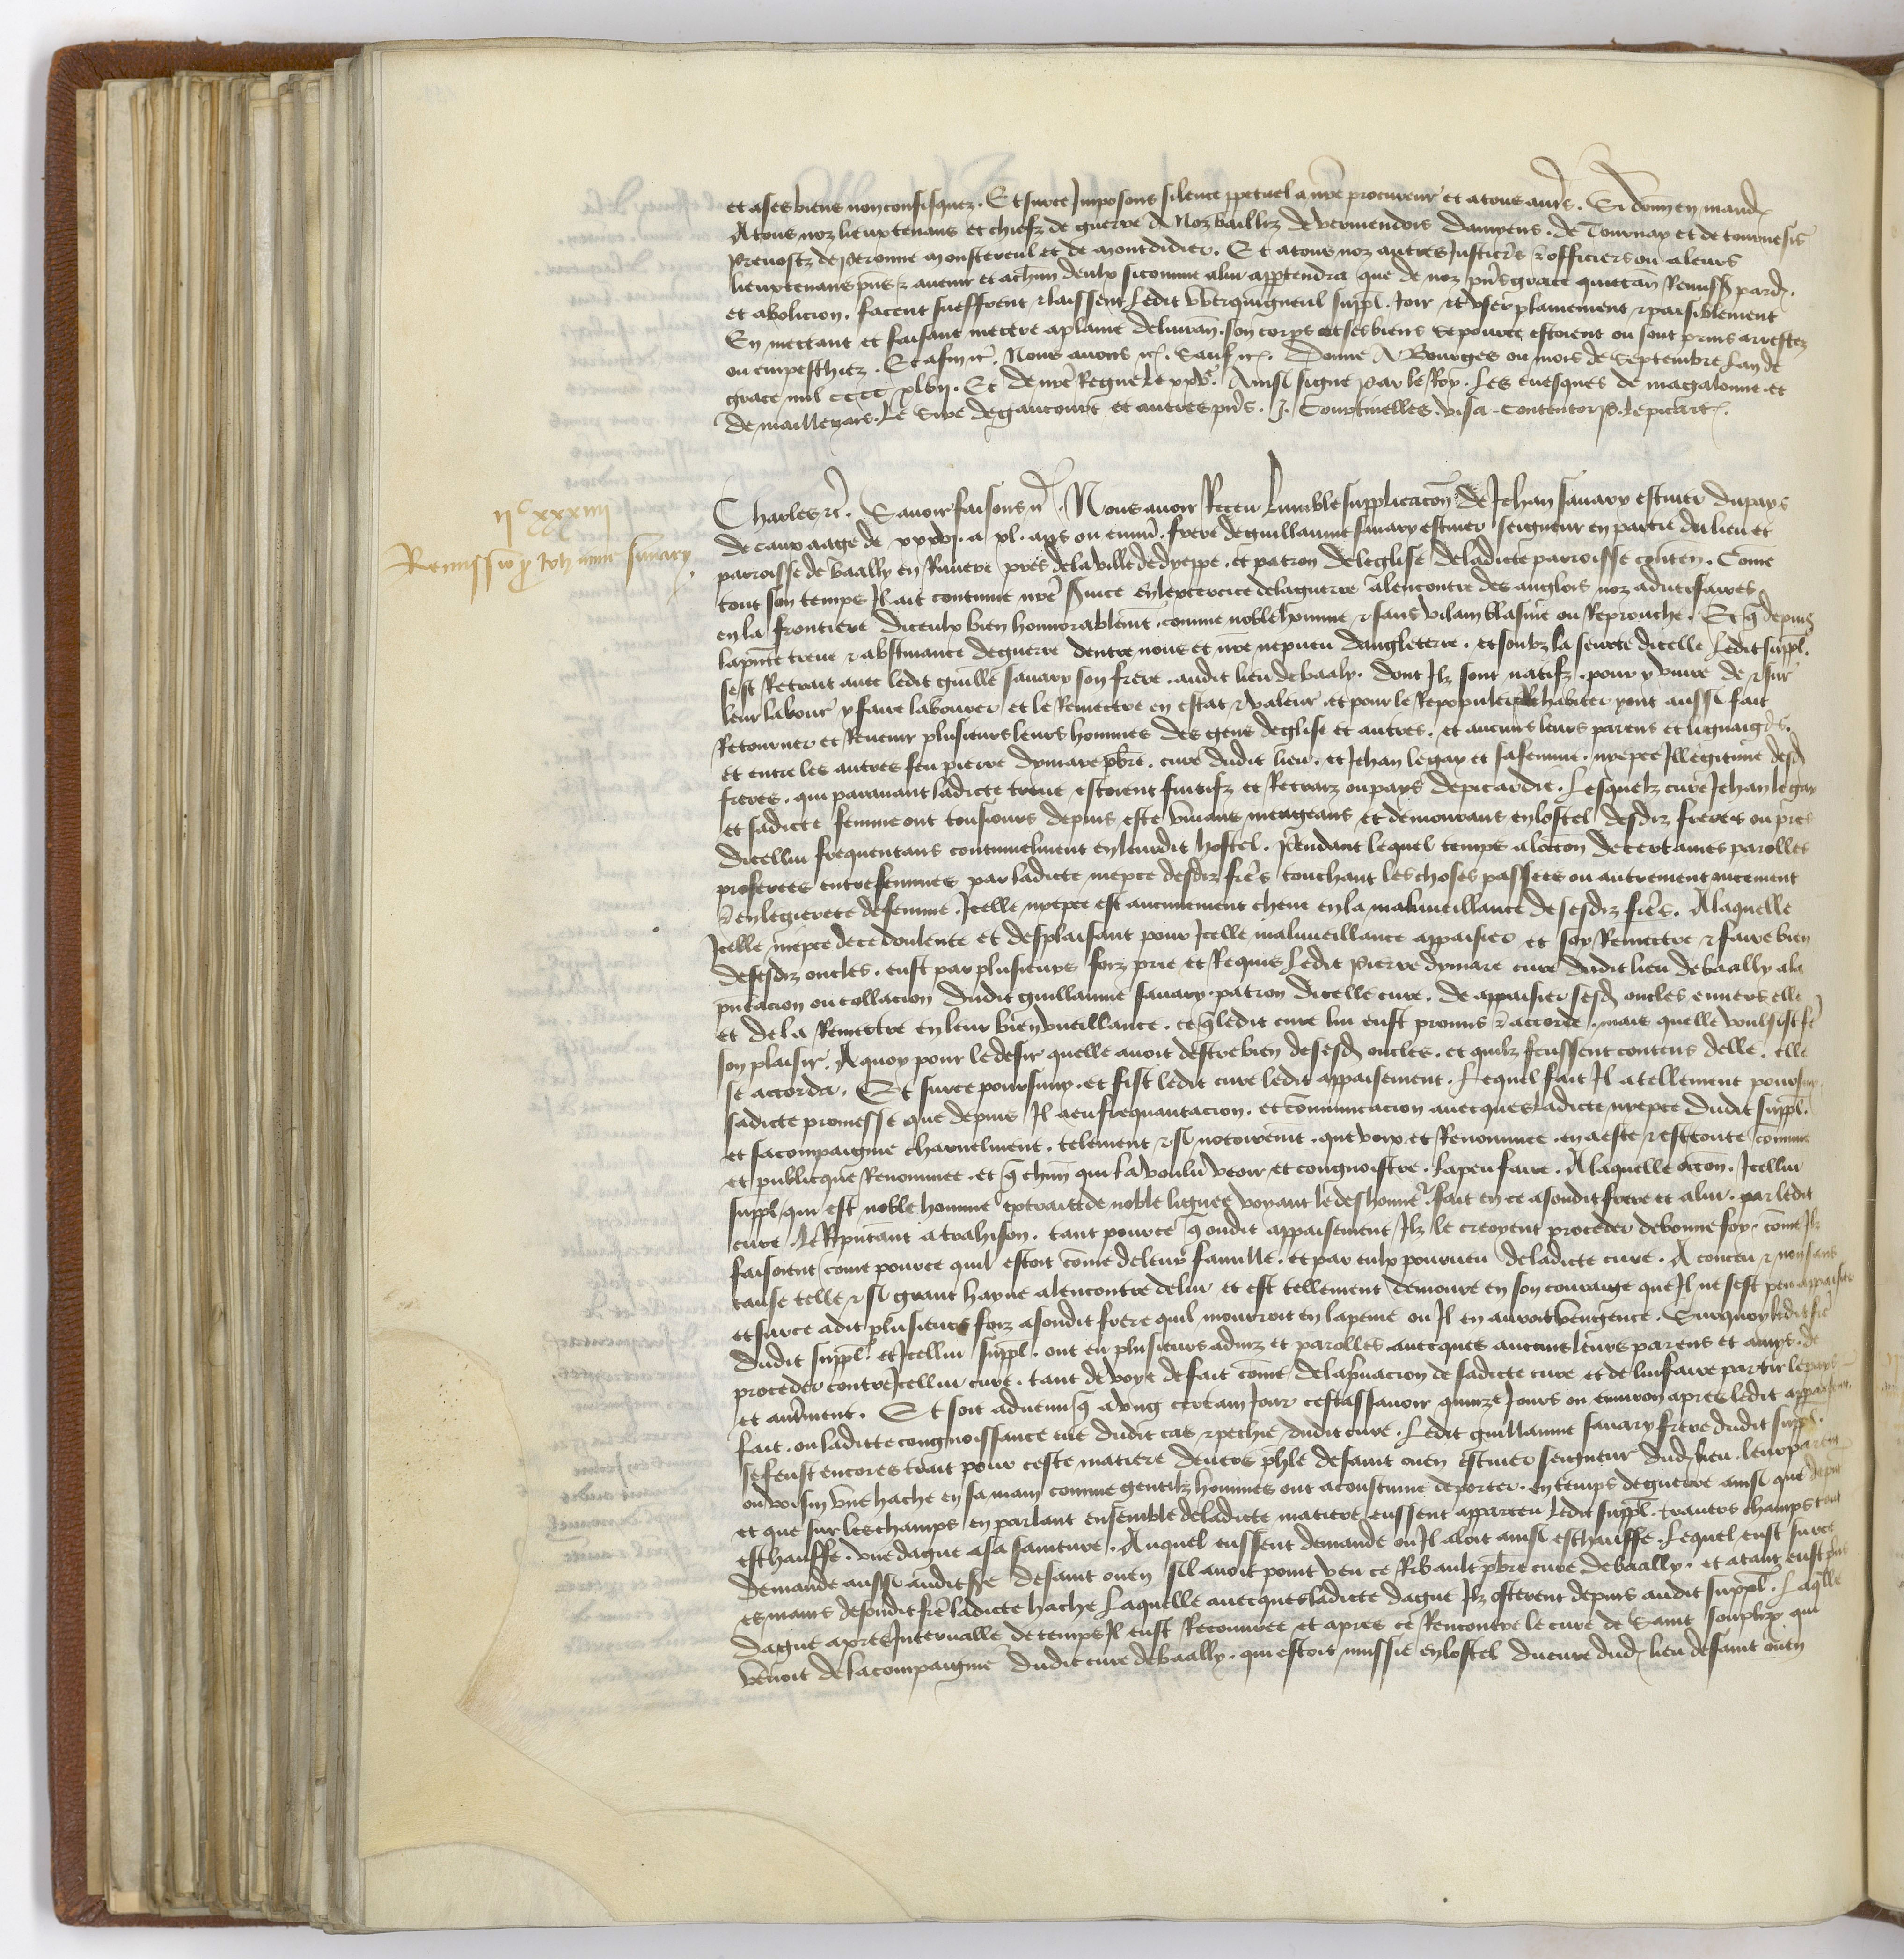 et a ses biens non confisquez. Et sur ce Imposons silence ppetuel a nre procureur et a tous autres. Si donn en mand
A tous noz lieuxtenans et chiefz de guerre A Noz bailliz de vermendois damyens. de Tournay et de tournesis
Prevostz de peronne monstereul et de montdidier. Et a tous noz autres Justiciers & officiers ou a leurs
lieuxtenans pns & avenir et a chun deulx si comme a lui apptendra que de noz pns grace quictan Remiss pard
et abolicion. facent sueffrent & laissent ledit suppl. Joir et user plainement & paisiblement
En mettant et faisant mettre a plaine delivran. son corps et ses biens se pource estoient ou sont prins arrestez
ou empeschiez. Et afin &c. Nous avons &c. Sauf &c. Donne A Bourges ou mois de Septembre Lan de
grace mil cccc xlvij. Et de nre Regne le xxv.e Ainsi signe Par le Roy. Les evesques de magalonne et
de maillezais. Le Sire de gaucourt et autres pns. J. Courtinelles. visa. Contentor. Le picart.
IIc xxxiiii
Remissio p Joh anne savary
Charles &c. Savoir faisons &c. Nous avoir Receu lumble supplicacon de Jehan savary escuier du pays
de caux aage de xxxvj. a xl. ans ou envir. frere de guillaume savary escuier seigneur en partie du lieu et
parroisse de vaally en Riviere pres de la ville de dyeppe. et patron de leglise de ladicte parroisse conten. Come
tout son temps Il ait continue nre svice en lexcercice de la guerre a lencontre des anglois noz adversaires
en la frontiere diceulx bien honnorablemt. comme noble homme & sans vilain blasme ou Reprouche. Et q depuis
la pnte treve & abstinance de guerre dentre nous et nre nepveu dangleterre. et soubz la seurte dicelle Ledit suppl.
sest Retrait avec ledit guille savary son frere. audit lieu de vaaly. dont Ilz sont natifz. pour y vivre de & sur
leur labour y faire labourer et le Remettre en estat & valeur. et pour le Repopuler habiter y ont aussi fait
Retourner et Revenir plusieurs leurs hommes des gens deglise et autres. et aucuns leurs parens et lignaigrs.
Et entre les autres feu pierre dymare pbre. cure dudit lieu. et Jehan legay et sa femme. niepce Illegitime desd
freres. qui paravant ladicte treve estoient fuitifz et Retraiz ou pays de picardie. Lesquelz cure Jehan legay
et sadicte femme ont tousiours depuis este vivans mengeans et demourans en lostel desdiz freres ou pres
dicellui frequentans continuelment en leurdit hostel. Pendant lequel temps a loccon de certaines parolles
proferees entre femmes par ladicte niepce desdiz frers touchant les choses passees ou autrement nicement
& en legierete de femme. Icelle niepce est aucunement cheue en la malvueillance de sesdiz frers. A laquelle
Icelle niepce de ce doulente et desplaisant pour Icelle malvueillance appaisier et soy Remettre & faire bien
de sesdiz oncles. eust par plusieurs foiz prie et Requis Ledit Pierre dymare cure dudit lieu de vaally a la
pntacion ou collacion dudit guillaume savary. patron dicelle cure. de appaisier sesd oncles envers elle
et de la Remettre en leur bien vueillance. ce q ledit cure lui eust promis & accorde. mais quelle voulsist fe
son plaisir. A quoy pour le desir quelle avoit destre bien de sesd oncles. et quilz feussent contens delle. elle
se accorda. Et sur ce poursuy. et fist ledit cure ledit appaisement. Lequel fait Il a tellement poursuy
sadicte promesse que depuis Il a eu frequantacion. et communicacion avecques ladicte niepce dudit suppl.
et sa compaignie charnelment. telement & si notoiremt. que voix et Renommee. en a este & est toute commune
et publicque Renommee. et q chun qui la voulu veoir et congnoistre. la peu faire. A laquelle occon. Icellui
suppl. qui est noble homme extrait de noble lignee voyant le deshonner. fait en ce a sondit frere et a lui. par ledit
cure. le Reputant a trahison. tant pource q ondit appaisement Ilz le creoyent proceder de bonne foy. come Ilz
faisoient come pource quil estoit come de leur famille. et par eulx pourveu de ladicte cure. A conceu & non sans
cause telle & si grant hayne a lencontre de lui et est tellement demoure en son couraige que Il ne sest peu appaiser
et sur ce a dit plusieurs foiz a sondit frere quil mourroit en la peine ou Il en auroit vengence. Surquoy ledit fre
dudit suppl. et Icellui suppl. ont eu plusieurs adviz et parolles. avecques aucuns leurs parens et amys. de
proceder contre Icellui cure. tant de voye de fait come de la privacion de sadicte cure et de lui faire partir le pays
et autrment. Et soit advenu q a ung certain Jour cestassavoir quinze Jours ou environ apres ledit appaisement
fait. ou ladicte congnoissance eue dudit cas & pechie dudit cure. Ledit guillaume savary frere dudit suppl.
se feust encores trait pour ceste matiere devers phle de saint ouen escuier seigneur dud lieu. leur parent
ou voisin une hache en sa main comme gentilz hommes ont acoustume de porter. en temps de guerre ainsi que depuis
et que sur les champs en parlant ensemble de ladicte matiere eussent apparceu ledit suppl. travers champs tout
eschauffe. une dague a sa sainture. Auquel eussent demande ou Il aloit ainsi eschauffe. Lequel eust sur ce
demande aussi audit phe de saint ouen sil avoit point veu ce Ribault pbre cure de vaally. et a tant eust prins
es mains de sondit fre ladicte hache Laquelle avecques ladicte dague Ilz osterent depuis audit suppl. Laqlle
dague apres Intervalle de temps Il eust Recouvree et apres ce Rencontre le cure de Saint soupliz qui
venoit de la compaignie dudit cure de vaally. qui estoit mussie en lostel du cure dud lieu de saint ouen